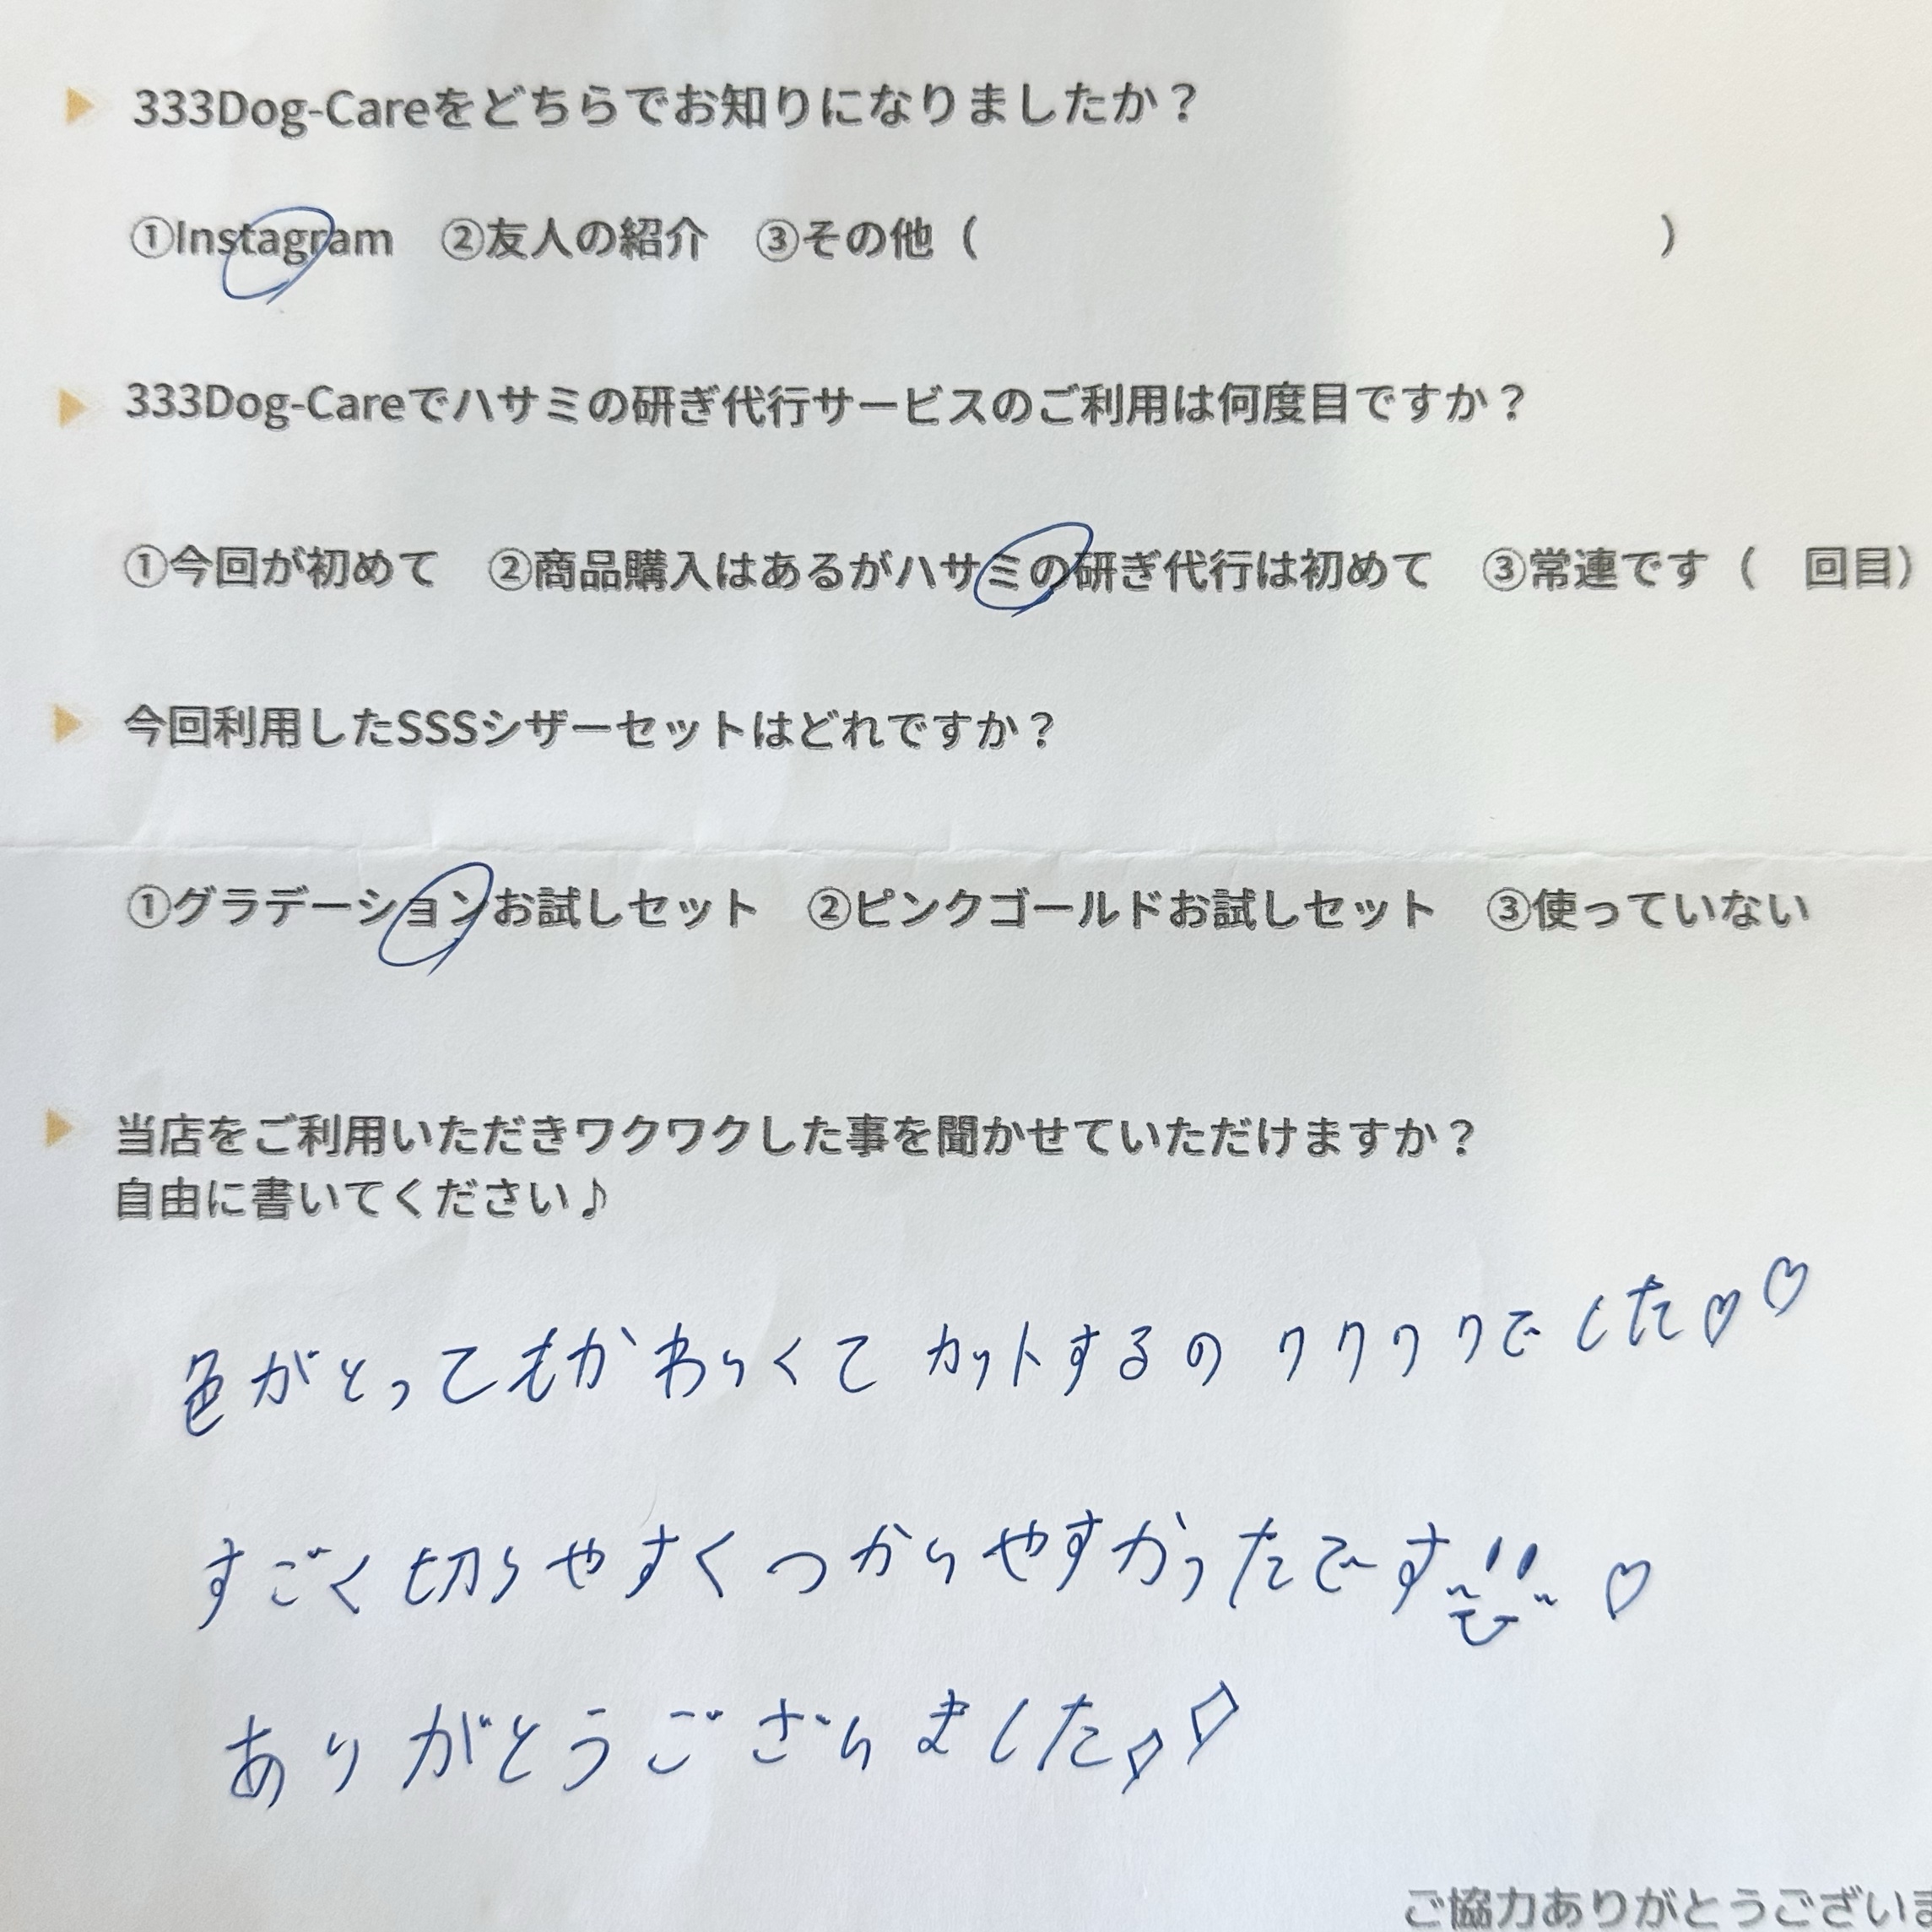 333Dog-Careをどちらでお知りになりましたか？
①Instagram ②友人の紹介 ③その他（ ）
333Dog-Careでハサミの研ぎ代行サービスのご利用は何度目ですか？
①今回が初めて ②商品購入はあるがハサミの研ぎ代行は初めて ③常連です（ 回目）
今回利用したSSSシザーセットはどれですか？
①グラデーションお試しセット ②ピンクゴールドお試しセット ③使っていない
当店をご利用いただきワクワクした事を聞かせていただけますか？
自由に書いてください♪
色がとってもかわいくてカットするのワクワクでした♡♡
すごく切りやすくつかいやすかったです ♡
ありがとうございました
ご協力ありがとうございま